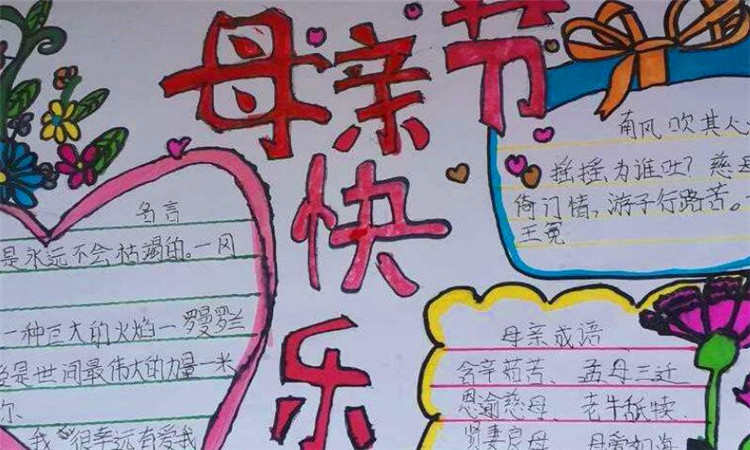 母亲节
快
乐
名言
是永远不会枯竭的。一冈
一种巨大的火焰一罗曼罗兰
是世间最伟大的力量一米
尔
我很幸运有爱我
南风吹其心
摇摇,为谁吐?慈母
倚门情,游子行路苦。
王冕
母亲成语
含辛茹苦、孟母三迁
恩逾慈母、老牛舐犊、
贤妻良母、母爱如海